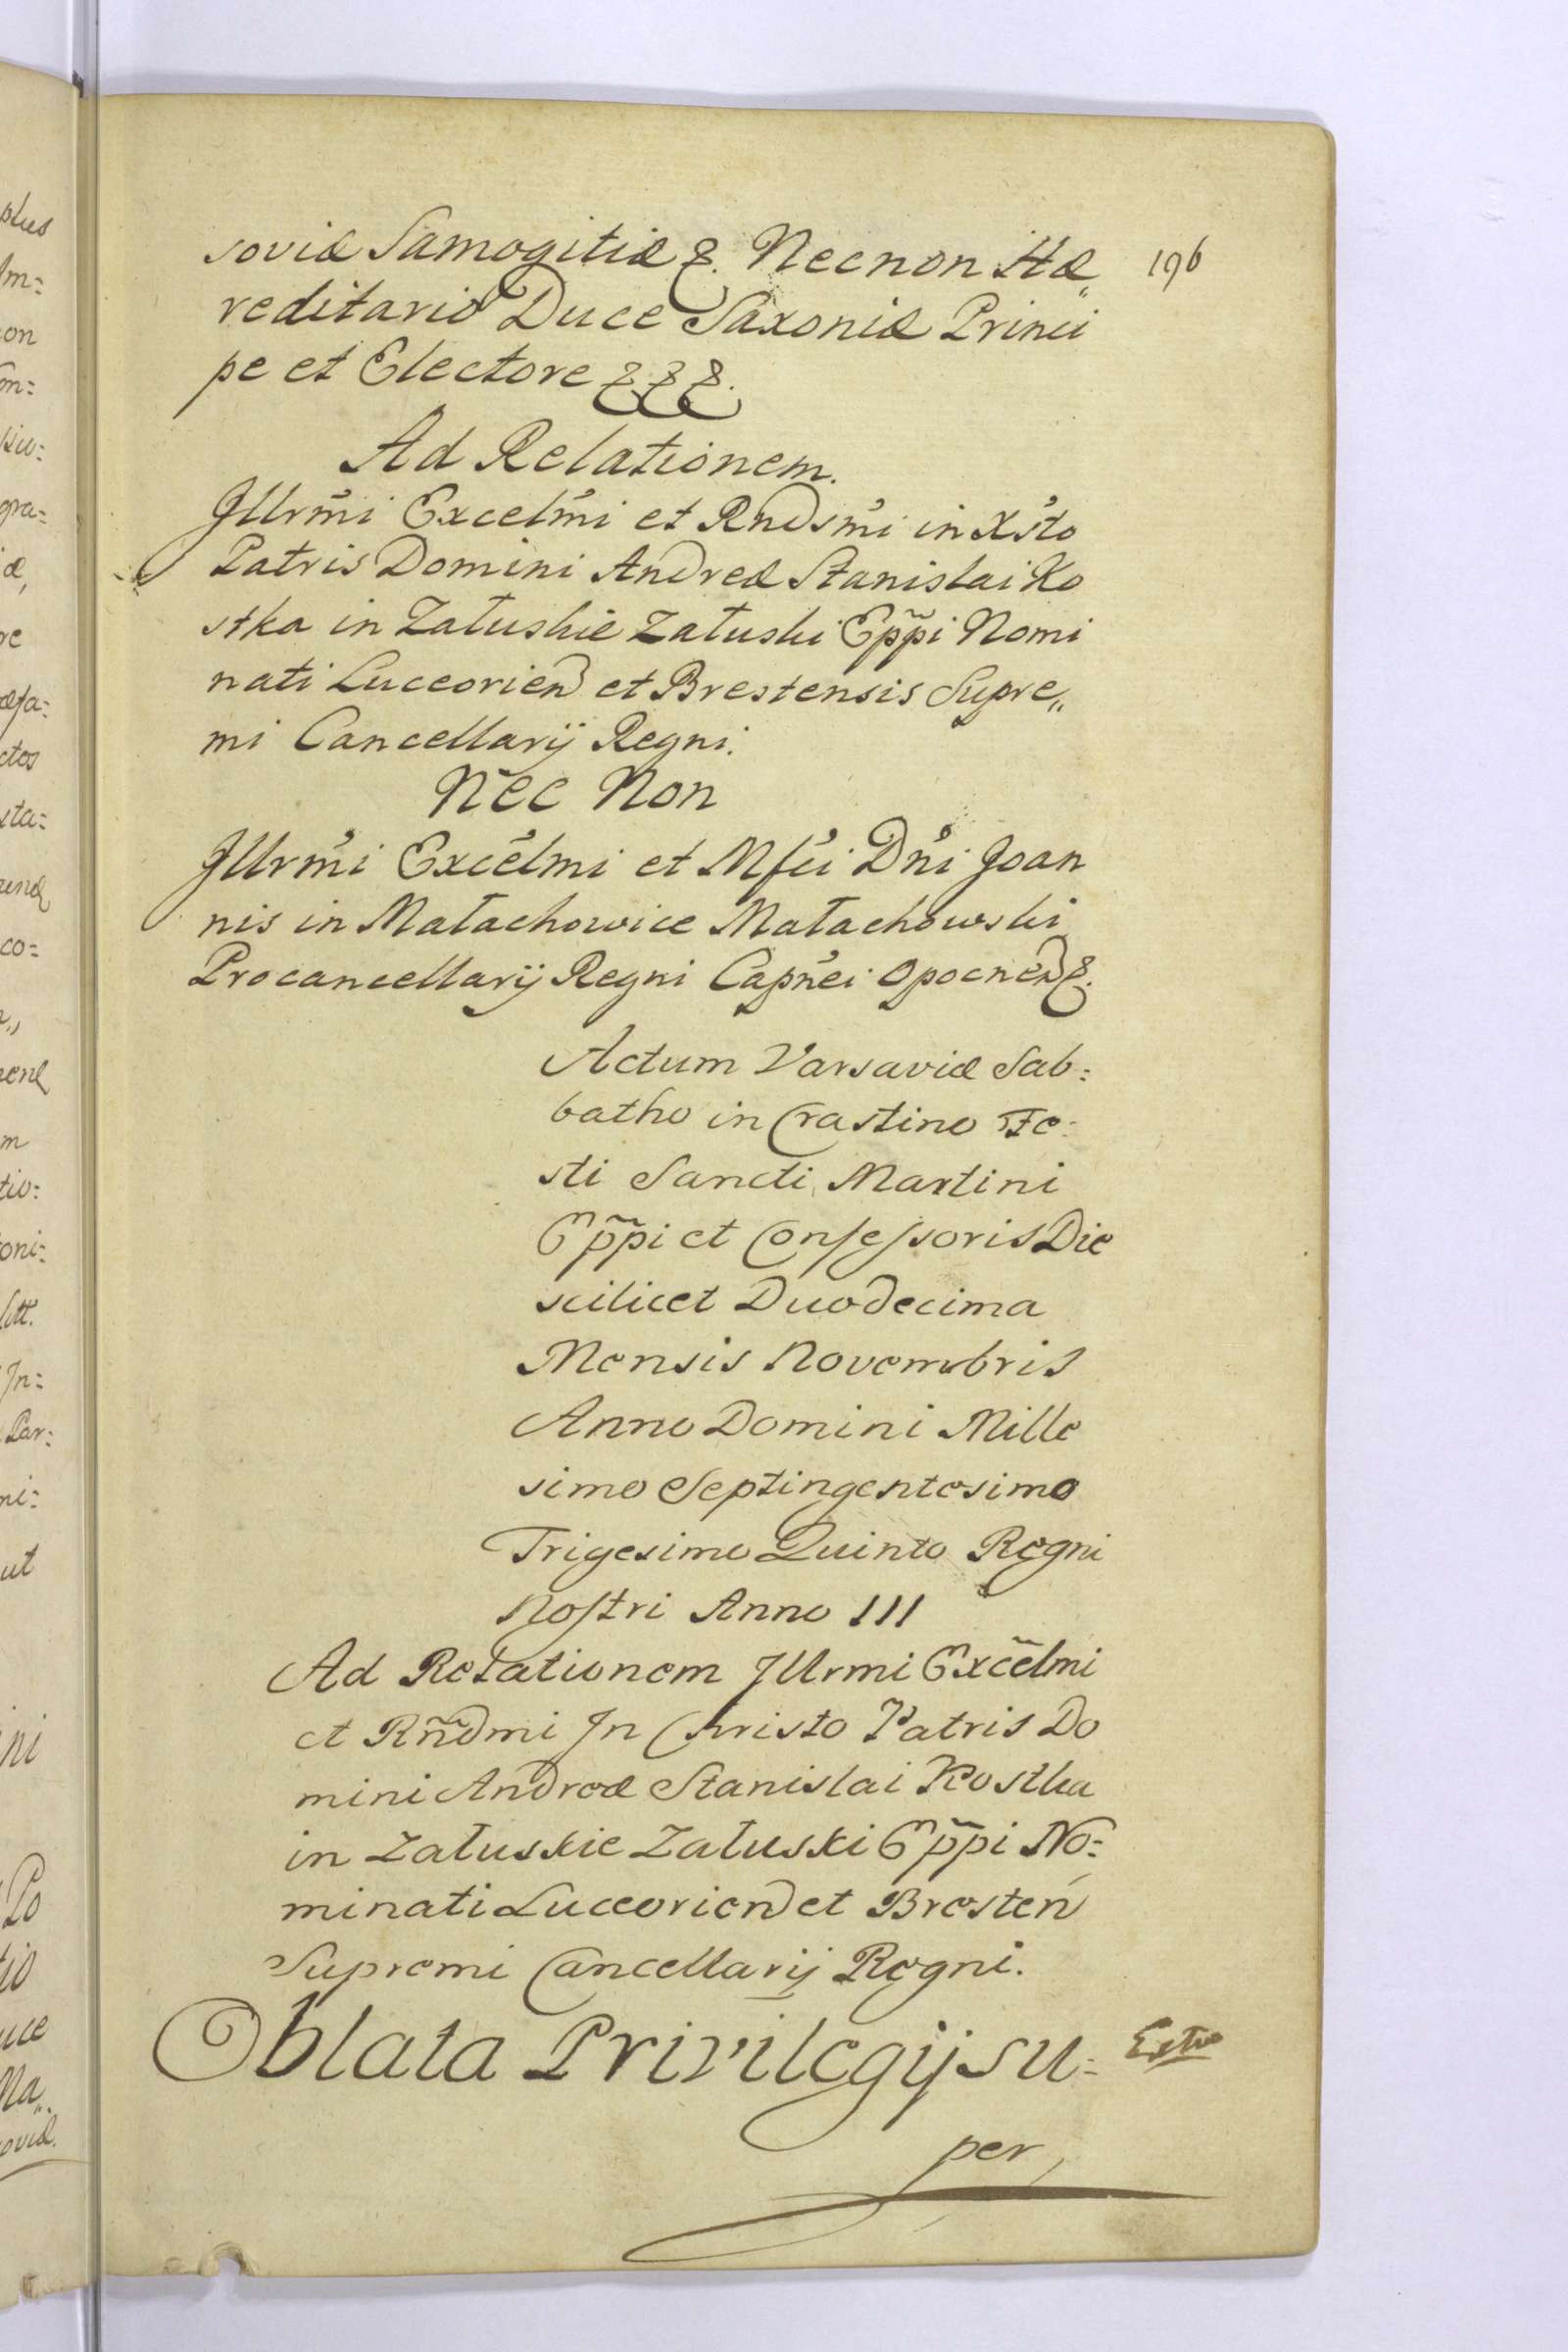 soviæ Samogitiæ &. Necnon Hæ„ 196
reditario Duce Saxoniæ Princi
pe et Electore &&&.
Ad Relationem.
Jllrm̃i Excelm̃i et Rndsm̃i in Xs̃to
Patris Domini Andreæ Stanislai Ko
stka in Załuskie Załuski Epp̃i Nomi
nati Luceorien̄ et Brestensis Supre„
mi Cancellarÿ Regni.
Nec Non
Jllrm̃i Excel̃mi et Mfc̃i Dñi Joan
nis in Małachowice Małachowski
Procancellarÿ Regni Capñei Opocneñ &.
Actum Varsaviæ Sab:
batho in Crastino Fe:
sti Sancti Martini
Epp̃i et Confeſsoris Die
scilicet Duodecima
Mensis Novembris
Anno Domini Mille
simo Septingentesimo
Trigesimo Quinto Regni
Noſtri Anno III
Ad Relationem Jllrmi Excel̃mi
et Rñdmi Jn Christo Patris Do
mini Andreæ Stanislai Kostka
in Załuskie Załuski Epp̃i No:
minati Luceorien̄ et Bresteń
Supremi Cancellarij Regni.
Oblata Privilegij su:
per